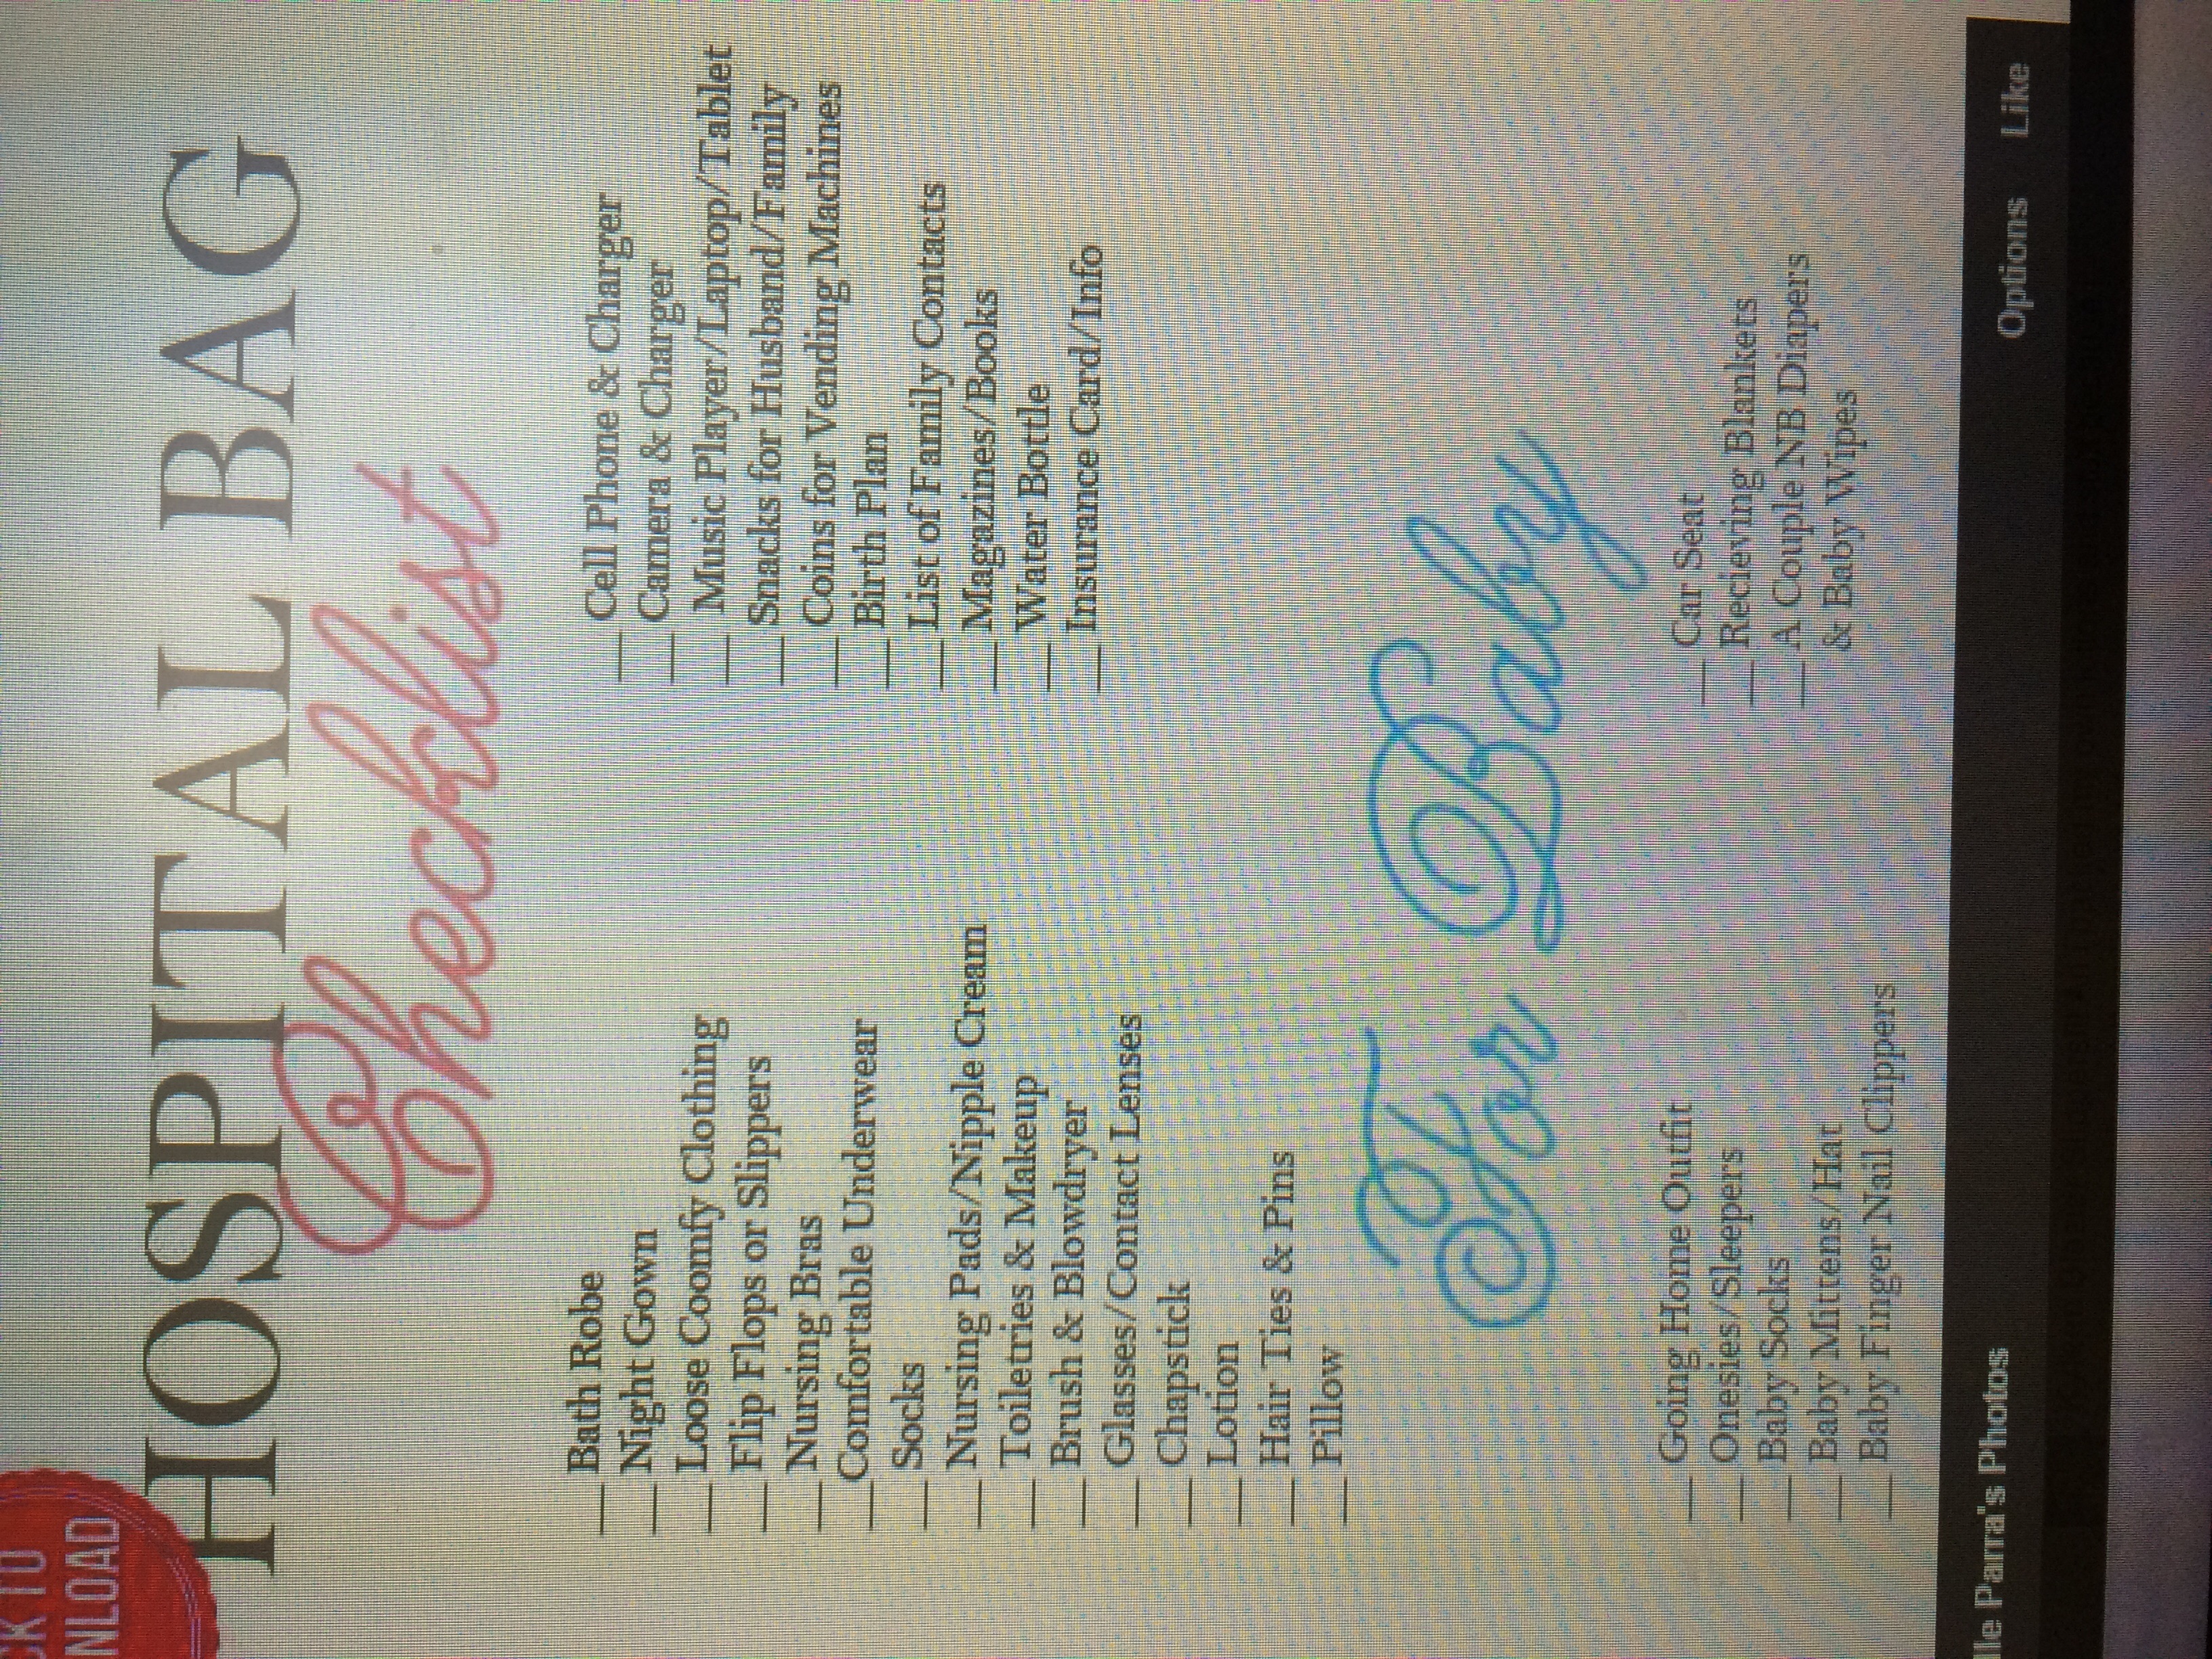 CK TO
NLOAD
HOSPITAL BAG
Checklist
__ Bath Robe
__ Night Gown
__ Loose Coomfy Clothing
__ Flip Flops or Slippers
__ Nursing Bras
__ Comfortable Underwear
__ Socks
__ Nursing Pads/Nipple Cream
__ Toiletries & Makeup
__ Brush & Blowdryer
__ Glasses/Contact Lenses
__ Chapstick
__ Lotion
__ Hair Ties & Pins
__ Pillow
__ Cell Phone & Charger
__ Camera & Charger
__ Music Player/Laptop/Tablet
__ Snacks for Husband/Family
__ Coins for Vending Machines
__ Birth Plan
__ List of Family Contacts
__ Magazines/Books
__ Water Bottle
__ Insurance Card/Info
For Baby
__ Going Home Outfit
__ Onesies/Sleepers
__ Baby Socks
__ Baby Mittens/Hat
__ Baby Finger Nail Clippers
__ Car Seat
__ Recieving Blankets
__ A Couple NB Diapers
& Baby Wipes
lle Parra's Photos
Options Like